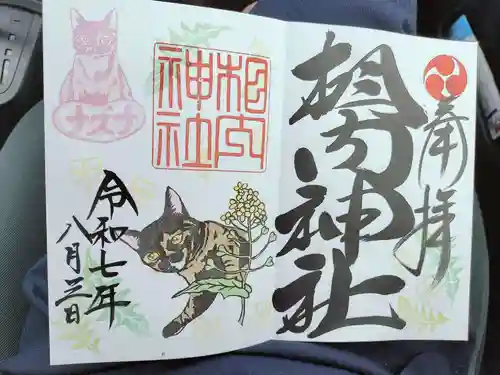 奉拝
相内神社
相内
神社
ナズナ
令和七年
八月三日